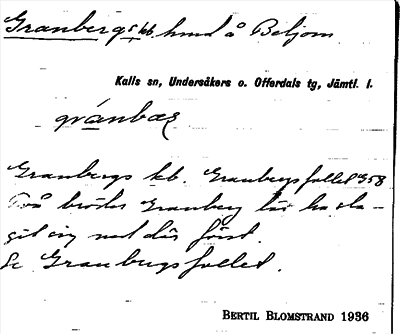 Granbergs kb. hmd å Beljom
Kalls sn, Undersåkers o. Offerdals tg, Jämtl. l.
gránbæ
Granbergs kb. Granbergsfallet 958
Två bröder Granberg lär ha sla-
git sig ned där först.
Se Granbergsfallet.
BERTIL BLOMSTRAND 1936